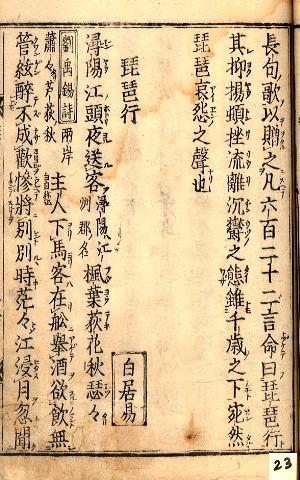 長句歌以贈之凡六百二十二言命曰琵琶行
其抑揚頓挫流離沉鬱之態雖千歳之下宛然
琵琶哀怨之聲也
琵琶行
白居易
潯陽江頭夜送客 潯陽江州郡名 楓葉荻花秋瑟々
劉禹錫詩 兩岸蕭々蘆荻秋 主人下馬客在舩擧酒欲飲無
管絃醉不成歡慘將別別時茫々江浸月忽聞
23